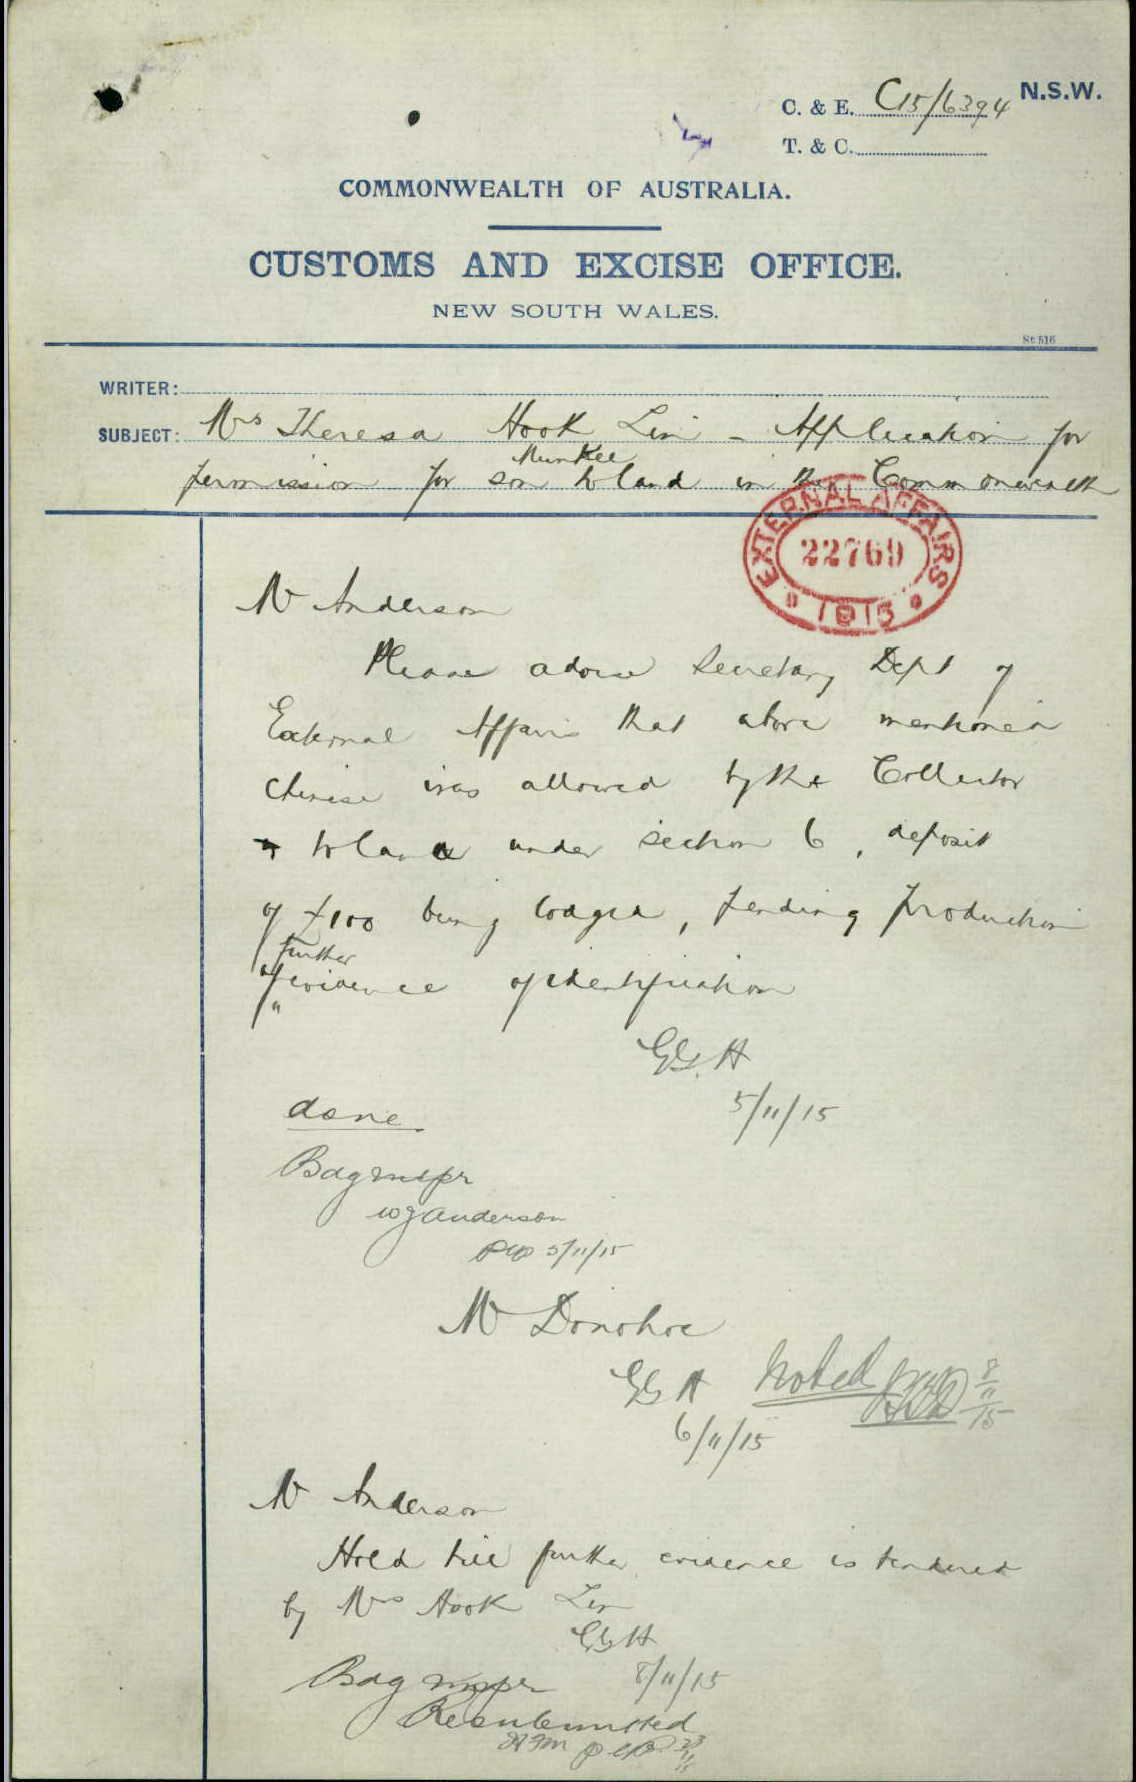 C. & E. C15/6394 N.S.W.
T. & C.
COMMONWEALTH OF AUSTRALIA.
CUSTOMS AND EXCISE OFFICE.
NEW SOUTH WALES.
St 516
WRITER:
SUBJECT: Mrs Theresa Hook Lin - Application for
permission for son Mun Kee to land in the Commonwealth
EXTERNAL AFFAIRS
22769
1915
Mr Anderson
Please advise Secretary Dept of
External Affairs that above mentioned
Chinese was allowed by the Collector
to land under section 6, deposit
of £100 being lodged, pending production
of further evidence of identification
GGH
5/11/15
done.
Bdg Inspr
WJ Anderson
5/11/15
Mr Donohoe
GGH
6/11/15
Noted
8/11/15
Mr Anderson
Hold till further evidence is tendered
by Mrs Hook Lin
GGH
8/11/15
Bdg Inspr
Resubmitted
23/11/15